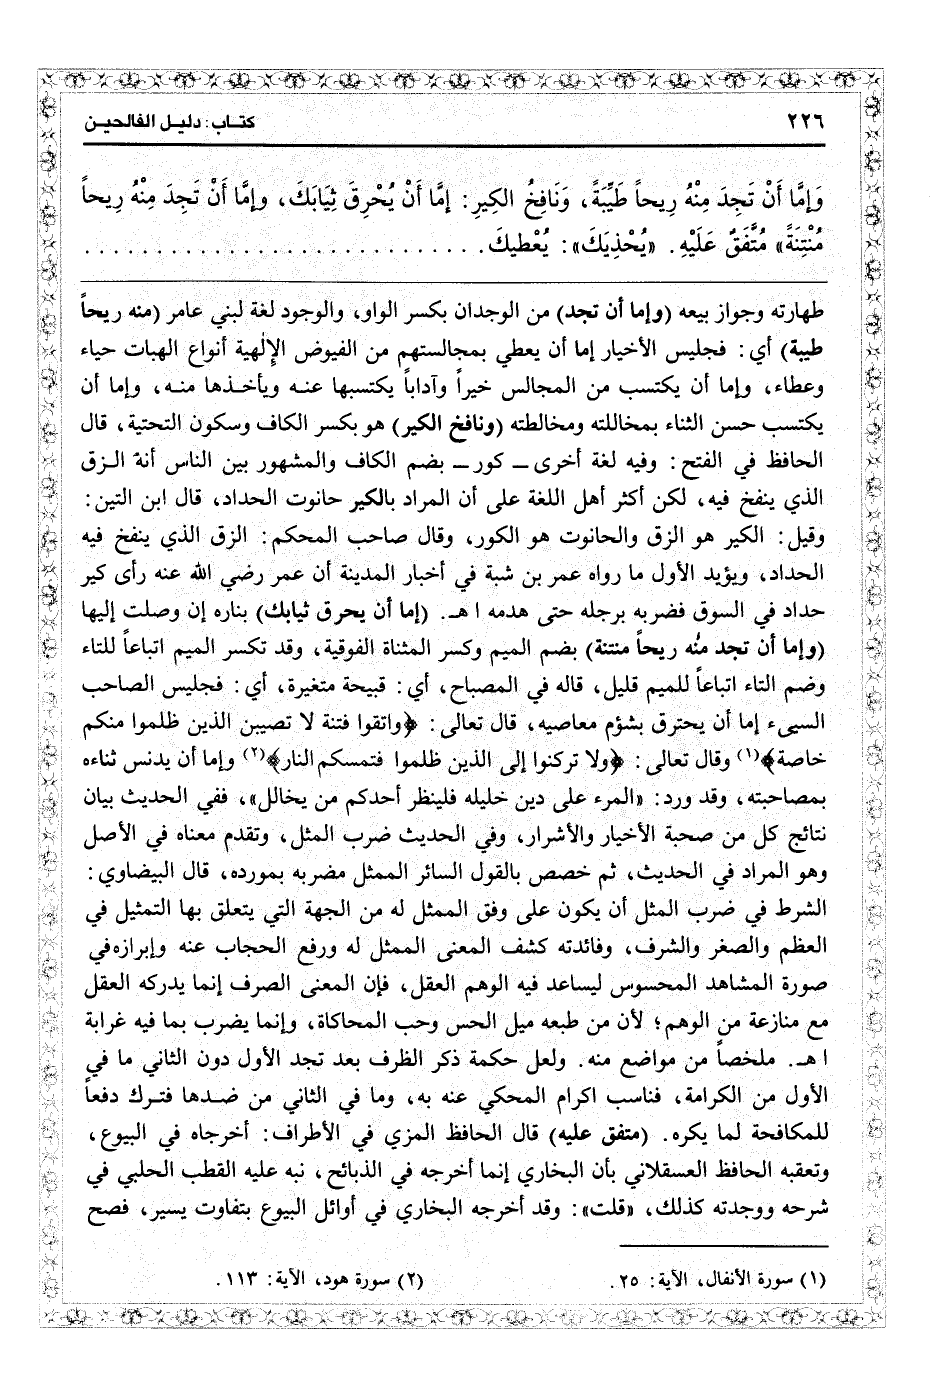 ٢٢٦
كتـاب: دليل الفالحيـن
وَإِمَّا أَنْ تَجِدَ مِنْهُ رِيحاً طَيِّبَةً، وَنَافِخُ الكِيرِ: إِمَّا أَنْ يُحْرِقَ ثِيَابَكَ، وإمَّا أَنْ تَجِدَ مِنْهُ رِيحاً
مُنْتِنَةً» مُتَّفَقٌ عَلَيْهِ. «يُحْذِيَكَ»: يُعْطيكَ. . . . . . . . . . . . . . . . . . . . . . . . . . . . .
طهارته وجواز بيعه (وإما أن تجد) من الوجدان بكسر الواو، والوجود لغة لبني عامر (منه ريحاً
طيبة) أي: فجليس الأخيار إما أن يعطي بمجالستهم من الفيوض الإلٰهية أنواع الهبات حياء
وعطاء، وإما أن يكتسب من المجالس خيراً وآداباً يكتسبها عنـه ويأخـذها منـه، وإما أن
يكتسب حسن الثناء بمخاللته ومخالطته (ونافخ الكير) هو بكسر الكاف وسكون التحتية، قال
الحافظ في الفتح: وفيه لغة أخرى ـ كور ـ بضم الكاف والمشهور بين الناس أنه الـزق
الذي ينفخ فيه، لكن أكثر أهل اللغة على أن المراد بالكير حانوت الحداد، قال ابن التين:
وقيل: الكير هو الزق والحانوت هو الكور، وقال صاحب المحكم: الزق الذي ينفخ فيه
الحداد، ويؤيد الأول ما رواه عمر بن شبة في أخبار المدينة أن عمر رضي الله عنه رأى كير
حداد في السوق فضربه برجله حتى هدمه ا هـ. (إما أن يحرق ثيابك) بناره إن وصلت إليها
(وإما أن تجد منه ريحاً منتنة) بضم الميم وكسر المثناة الفوقية، وقد تكسر الميم اتباعاً للتاء
وضم التاء اتباعاً للميم قليل، قاله في المصباح، أي: قبيحة متغيرة، أي: فجليس الصاحب
السيىء إما أن يحترق بشؤم معاصيه، قال تعالى: ﴿واتقوا فتنة لا تصيبن الذين ظلموا منكم
خاصة﴾(١) وقال تعالى: ﴿ولا تركنوا إلى الذين ظلموا فتمسكم النار﴾(٢) وإما أن يدنس ثناءه
بمصاحبته، وقد ورد: «المرء على دين خليله فلينظر أحدكم من يخالل»، ففي الحديث بيان
نتائج كل من صحبة الأخيار والأشرار، وفي الحديث ضرب المثل، وتقدم معناه في الأصل
وهو المراد في الحديث، ثم خصص بالقول السائر الممثل مضربه بمورده، قال البيضاوي:
الشرط في ضرب المثل أن يكون على وفق الممثل له من الجهة التي يتعلق بها التمثيل في
العظم والصغر والشرف، وفائدته كشف المعنى الممثل له ورفع الحجاب عنه وإبرازه في
صورة المشاهد المحسوس ليساعد فيه الوهم العقل، فإن المعنى الصرف إنما يدركه العقل
مع منازعة من الوهم؛ لأن من طبعه ميل الحس وحب المحاكاة، وإنما يضرب بما فيه غرابة
ا هـ. ملخصاً من مواضع منه. ولعل حكمة ذكر الظرف بعد تجد الأول دون الثاني ما في
الأول من الكرامة، فناسب اكرام المحكي عنه به، وما في الثاني من ضـدها فتـرك دفعاً
للمكافحة لما يكره. (متفق عليه) قال الحافظ المزي في الأطراف: أخرجاه في البيوع،
وتعقبه الحافظ العسقلاني بأن البخاري إنما أخرجه في الذبائح، نبه عليه القطب الحلبي في
شرحه ووجدته كذلك، «قلت»: وقد أخرجه البخاري في أوائل البيوع بتفاوت يسير، فصح
(١) سورة الأنفال، الآية: ٢٥.
(٢) سورة هود، الآية: ١١٣.